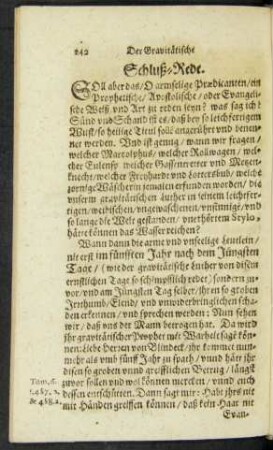 242 Der Gravitätische
Schluß-Rede.
SOll aber das / O armselige Prædicanten / ein
Prophetische / Apostolische / oder Evangeli-
sche Weiß und Art zu reden seyn? was sag ich?
Sünd und Schand ist es / daß bey so leichfertigem
Wust / so heilige Titul soll angerührt und benen-
net werden. Und ist genug / wann wir fragen /
welcher Marcolphus / welcher Rollwagen / wel-
cher Eulenspiegel / welcher Gassentretter und Metzen-
knecht / welcher Freyhardt und Lottersbub / welche
zornige Wäscherin jemalen erfunden worden / die
unserm gravitätischen Luther in seinem leichtfer-
tigen / weibischen / ungewaschnen / unsinnig / und
so lange die Welt gestanden / unerhörtem Stylo,
hätte können das Wasser reichen?
Wann dann die arme und unseelige Leutlein /
nit erst im fünfften Jahr nach dem Jüngsten
Tage / (wie der gravitätische Luther von disem
ernstlichen Tage so schimpfflich redet) sondern zu-
vor / und am Jüngsten Tag selber / ihren so groben
Irrthumb / Elend / und unwiderbringlichen scha-
den erkennen / und sprechen werden: Nun sehen
wir / daß uns der Mann betrogen hat. Da wird
ihr gravitätischer Prophet mit Warheit sagē kön-
nen: Liebe Herren von Blindeck / ihr kommet nun-
mehr als umb fünff Jahr zu spath / unnd hätt ihr
disen so groben unnd greifflichen Betrug / längst
zuvor sollen und wol können mercken / unnd euch
dessen entschütten. Dann sagt mir: Habt jhrs nit
mit Händen greiffen können / daß kein Haar nit
Evan-
Tom. 6.